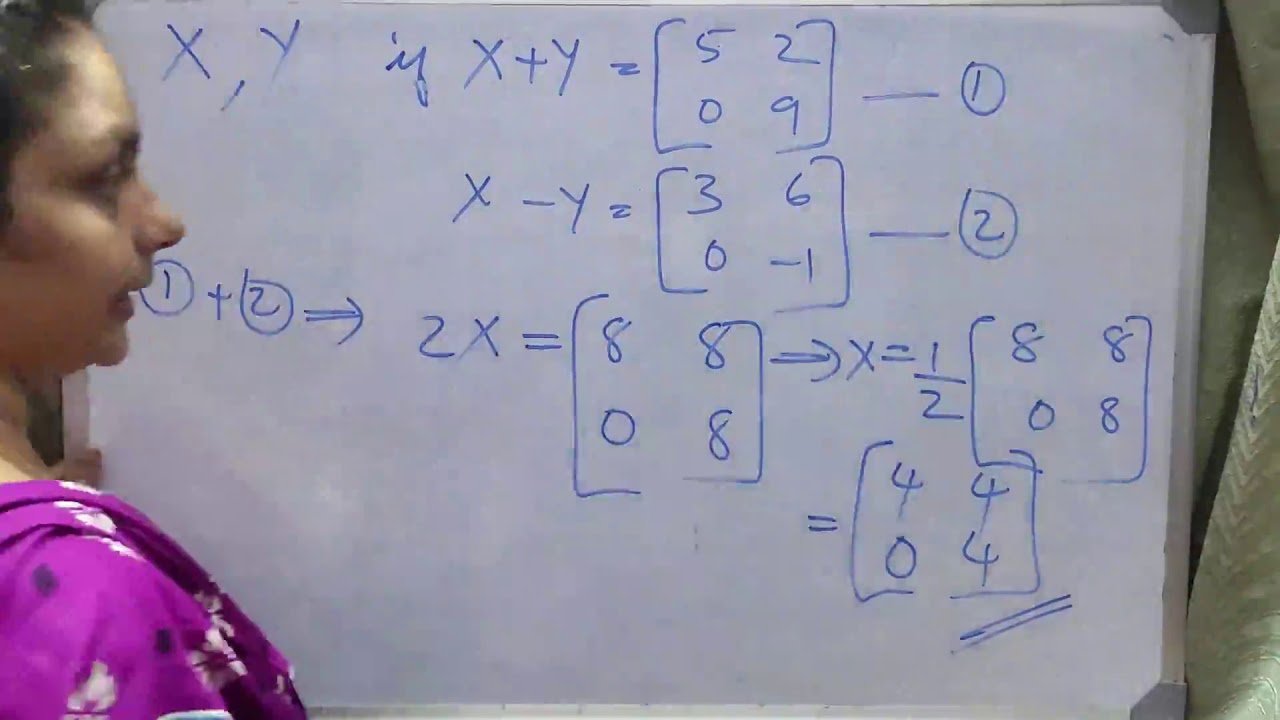 X, Y if X+Y = [5 2
0 9] — ①
X - Y = [3 6
0 -1] — ②
① + ② ⇒ 2X = [8 8
0 8] ⇒ X = 1/2 [8 8
0 8]
= [4 4
0 4]